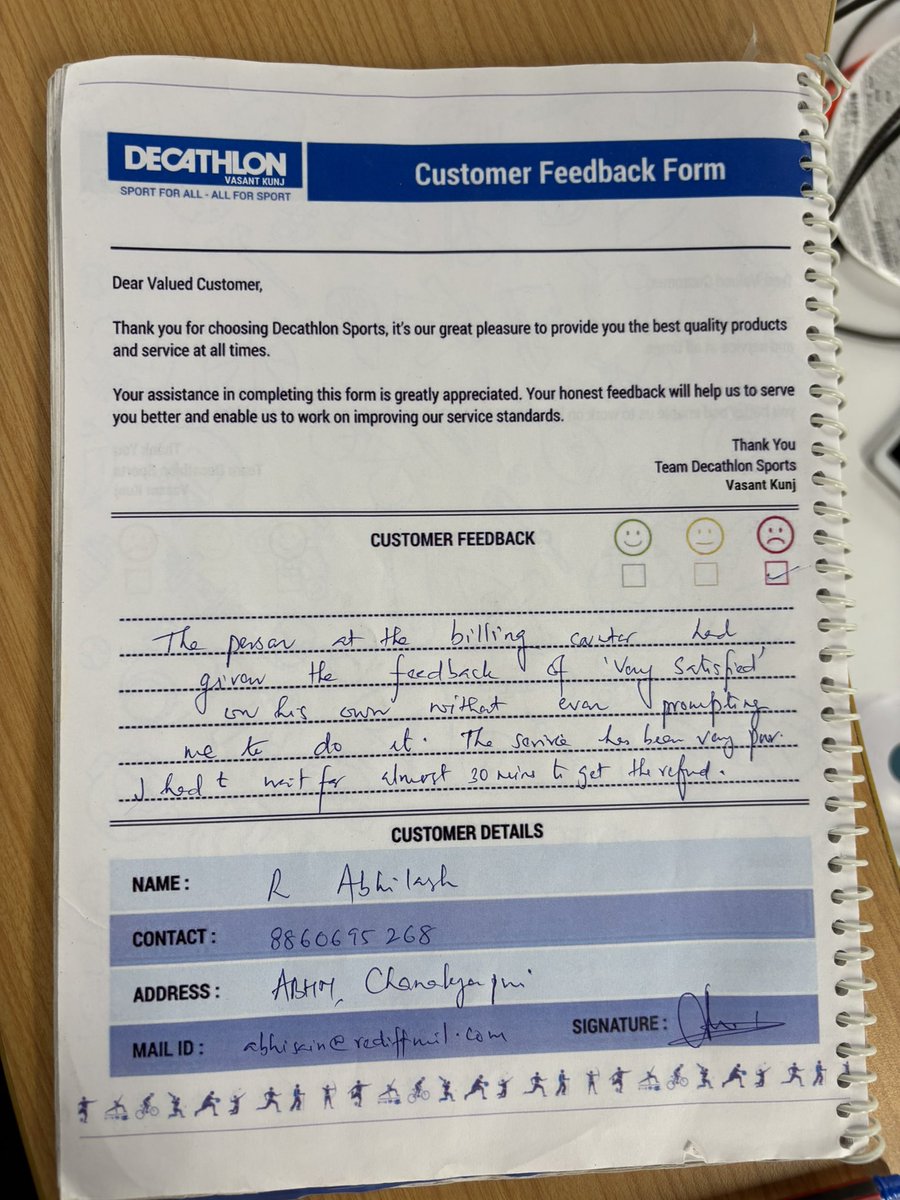 DECATHLON
VASANT KUNJ
SPORT FOR ALL - ALL FOR SPORT
Customer Feedback Form
Dear Valued Customer,
Thank you for choosing Decathlon Sports, it's our great pleasure to provide you the best quality products
and service at all times.
Your assistance in completing this form is greatly appreciated. Your honest feedback will help us to serve
you better and enable us to work on improving our service standards.
Thank You
Team Decathlon Sports
Vasant Kunj
CUSTOMER FEEDBACK
The person at the billing counter had
given the feedback of 'Very Satisfied'
on his own without even prompting
me to do it. The service has been very poor.
I had t wait for almost 30 mins to get the refund.
CUSTOMER DETAILS
NAME : R Abhilash
CONTACT : 8860695268
ADDRESS : Chanakyapuri
MAIL ID : abhisain@rediffmil.com
SIGNATURE :